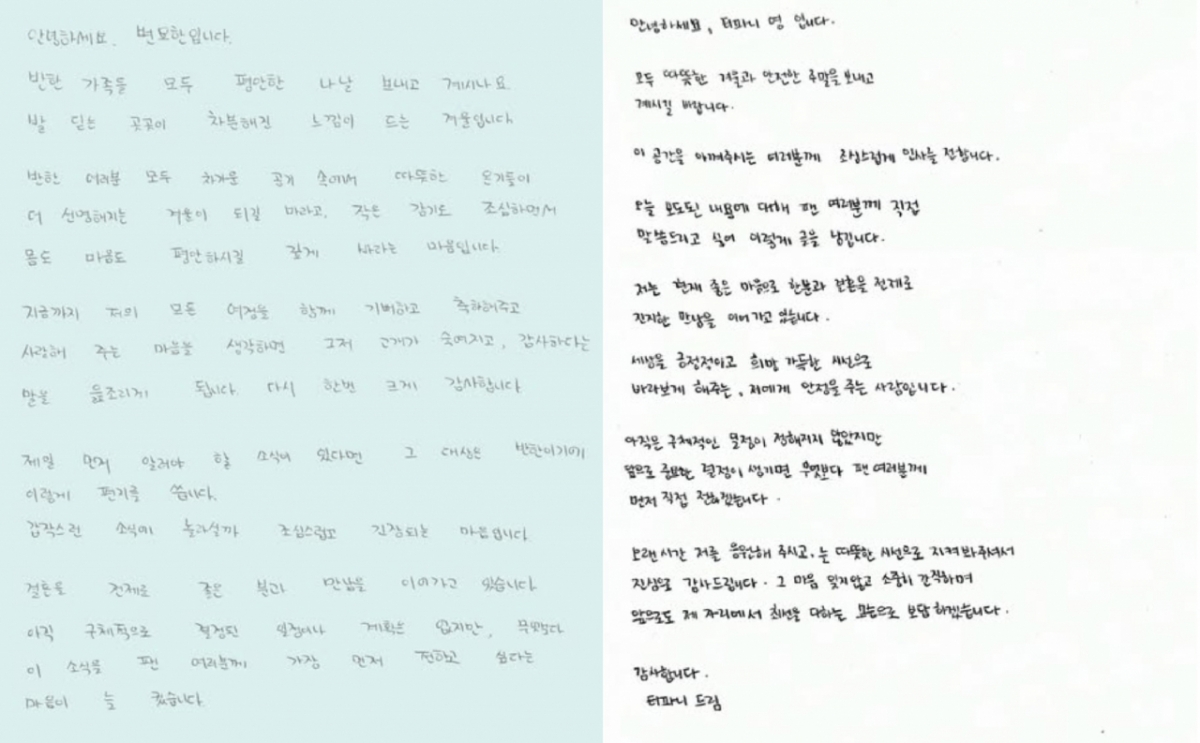 안녕하세요. 변요한입니다.
반한 가족들 모두 평안한 나날 보내고 계시나요.
발 딛는 곳곳이 차분해진 느낌이 드는 겨울입니다
반한 여러분 모두 차가운 공기 속에서 따뜻한 온기들이
더 선명해지는 겨울이 되길 바라고, 작은 감기도 조심하면서
몸도 마음도 평안하시길 깊게 바라는 마음입니다.
지금까지 저의 모든 여정을 함께 기뻐하고 축하해주고
사랑해 주는 마음을 생각하면 그저 고개가 숙여지고, 감사하다는
말을 읊조리게 됩니다. 다시 한번 크게 감사합니다
제일 먼저 알려야 할 소식이 있다면 그 대상은 반한이기에
이렇게 편지를 씁니다.
갑작스런 소식에 놀라실까 조심스럽고 긴장되는 마음입니다
결혼을 전제로 좋은 분과 만남을 이어가고 있습니다
아직 구체적으로 결정된 일정이나 계획은 없지만, 무엇보다
이 소식을 팬 여러분께 가장 먼저 전하고 싶다는
마음이 늘 컸습니다.
안녕하세요, 티파니 영 입니다.
모두 따뜻한 겨울과 안전한 주말을 보내고
계시길 바랍니다.
이 공간을 아껴주시는 여러분께 조심스럽게 인사를 전합니다.
오늘 보도된 내용에 대해 팬 여러분께 직접
말씀드리고 싶어 이렇게 글을 남깁니다.
저는 현재 좋은 마음으로 한분과 결혼을 전제로
진지한 만남을 이어 가고 있습니다.
세상을 긍정적이고 희망 가득한 시선으로
바라보게 해주는, 저에게 안정을 주는 사람입니다.
아직은 구체적인 일정이 정해지지 않았지만
앞으로 중요한 결정이 생기면 무엇보다 팬 여러분께
먼저 직접 전하겠습니다.
오랜시간 저를 응원해 주시고, 늘 따뜻한 시선으로 지켜봐주셔서
진심으로 감사드립니다. 그 마음 잊지않고 소중히 간직하며
앞으로도 제 자리에서 최선을 다하는 모습으로 보답하겠습니다.
감사합니다.
티파니 드림